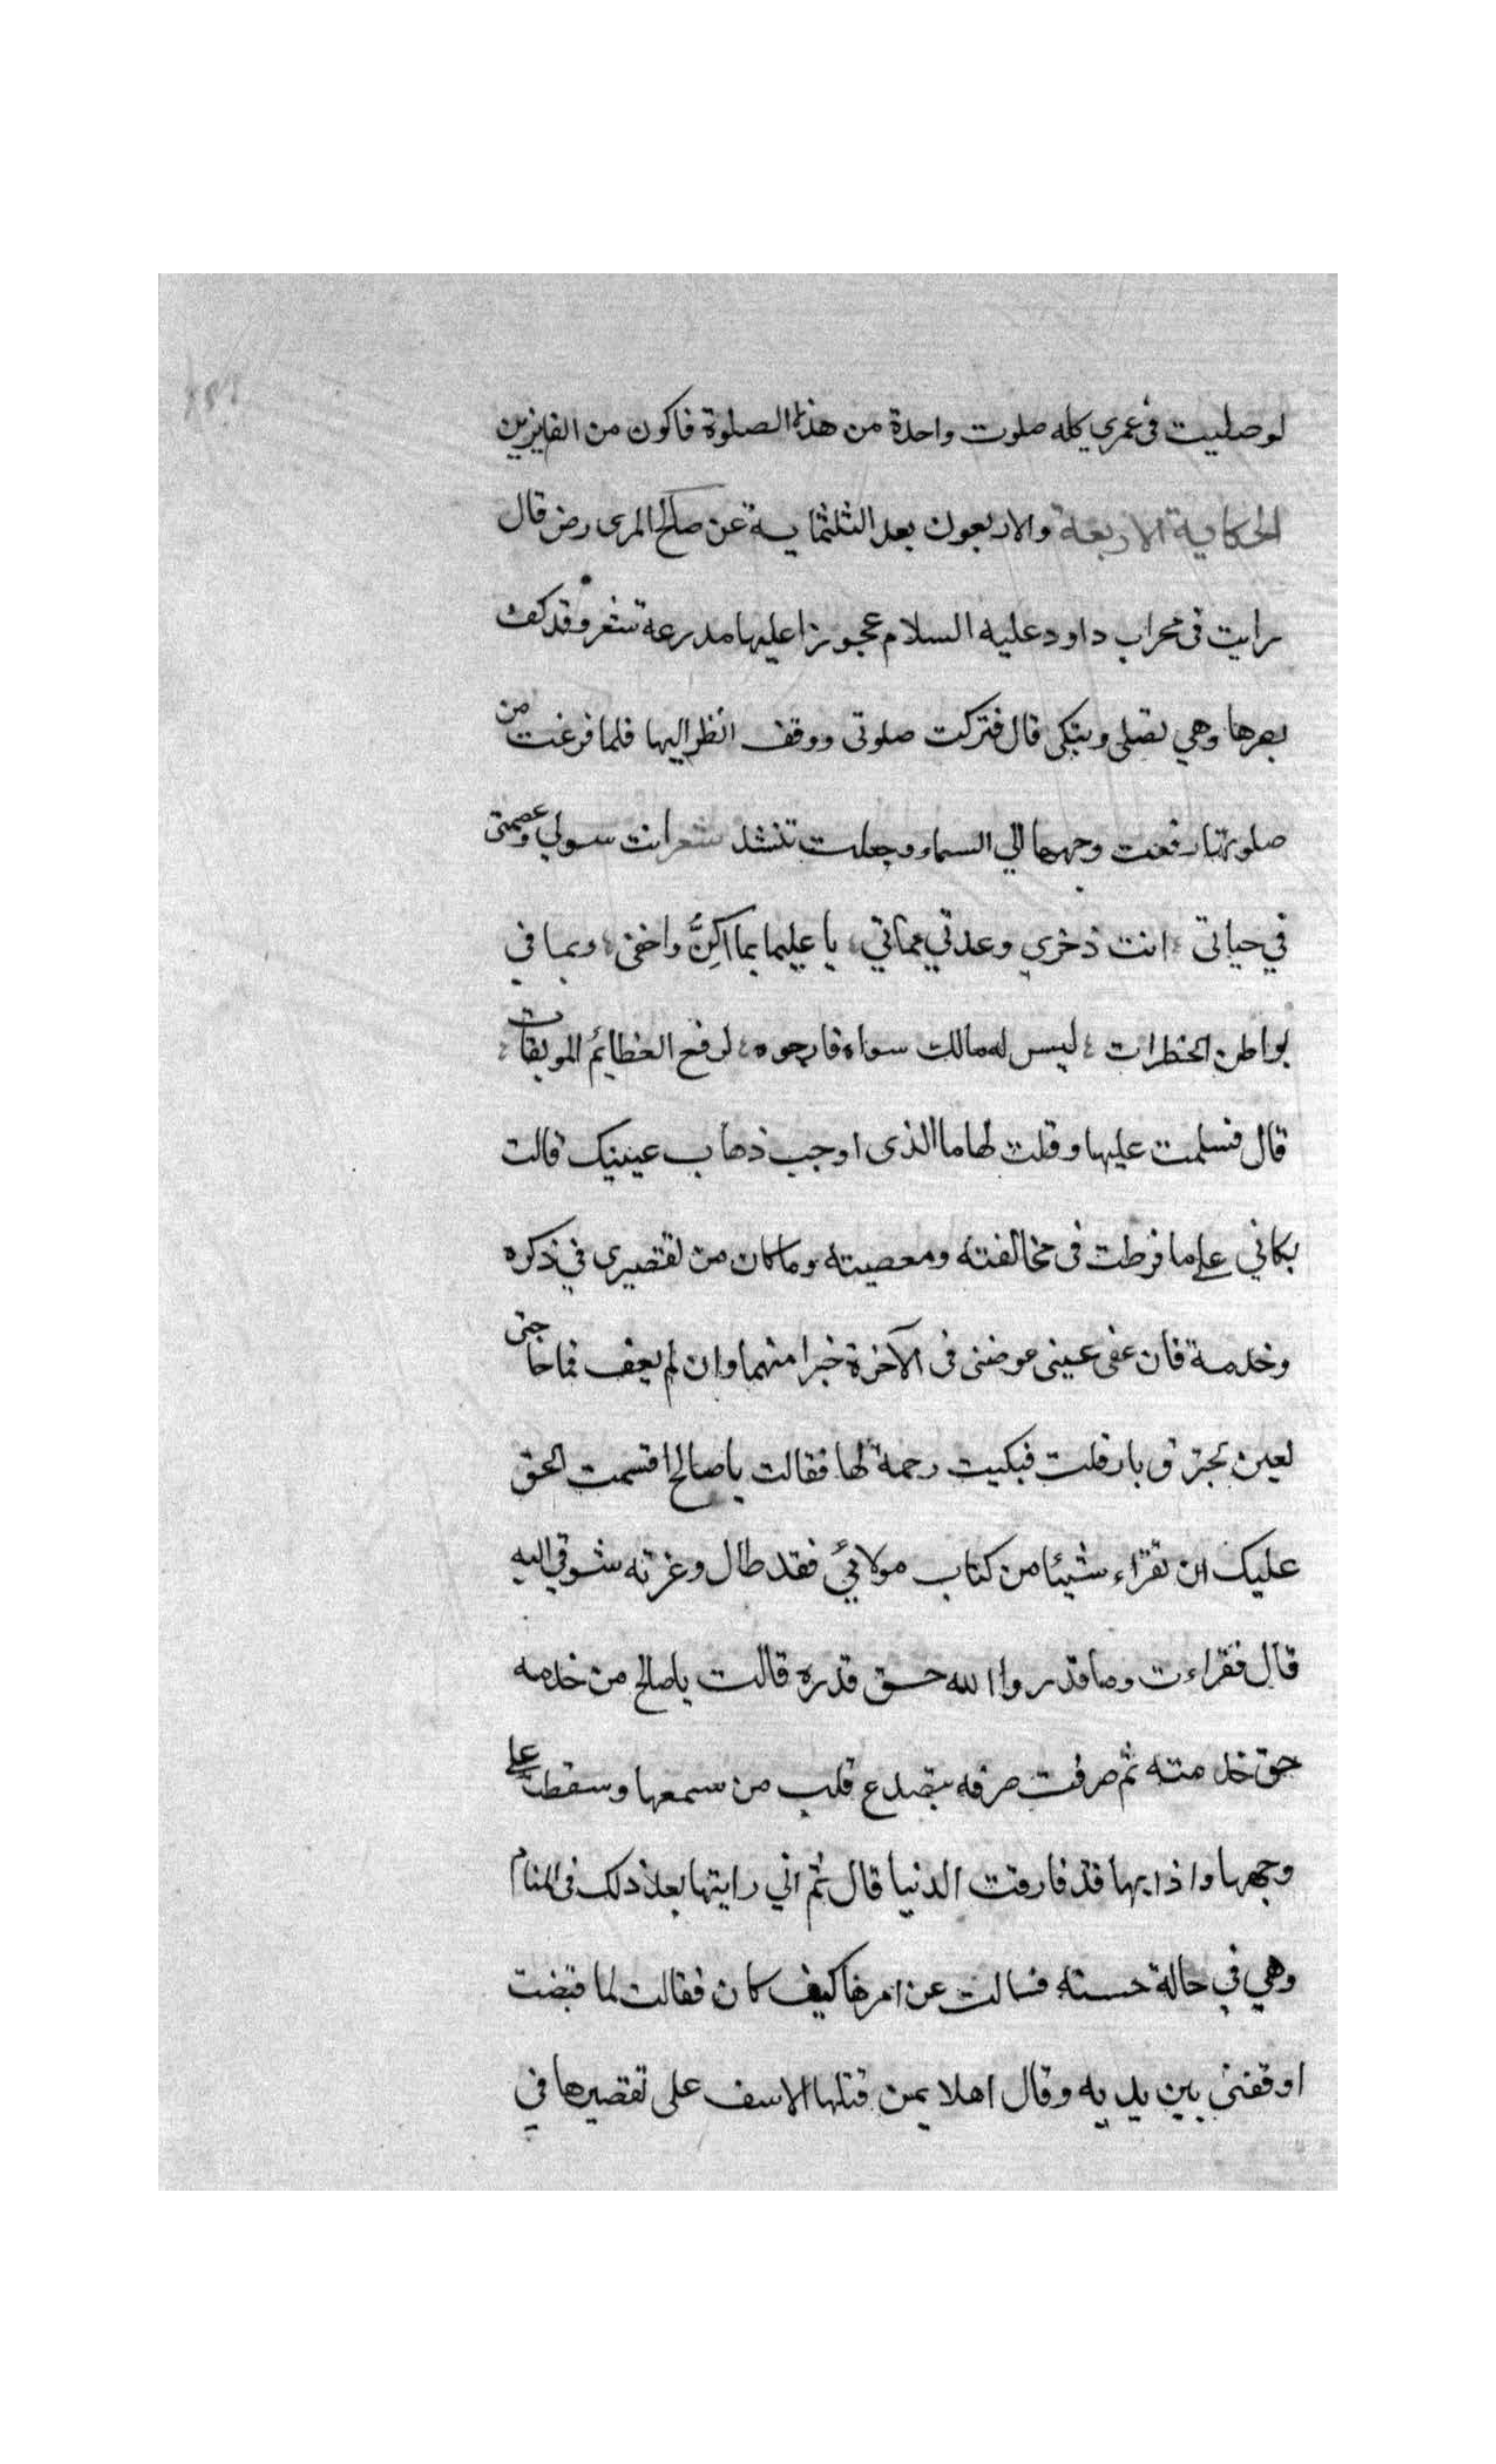 لو صليت في عمري كله صلوت واحدة من هذه الصلوة فاكون من الفايزين
الحكاية الاربعة والاربعون بعد الثلثماية عن صالح المرى رض قال
رايت في محراب داود عليه السلام عجوزا عليها مدرعة شعر وقد كف
بصرها وهي تصلي وتبكى قال فتركت صلوتى ووقف انظر اليها فلما فرغت من
صلوتها رفعت وجهها الي السماء وجعلت تنشد شعر انت سولي وعصمتى
في حياتى انت ذخري وعدتي مماتي يا عليما بما اكنُّ واخفى وبما في
بواطن الخطرات ليس له مالك سواه فارجوه لرفع العظايم الموبقات
قال فسلمت عليها وقلت لها ما الذى اوجب ذهاب عينيك قالت
بكائي علي ما فرطت فى مخالفته ومعصيته وما كان من تقصيرى في ذكره
وخدمة فان عفى عينى عوضنى فى الآخرة خيرا منهما وان لم يعف فما حاجتى
لعين تحترق بار قلت فبكيت رحمة لها فقالت يا صالح اقسمت الحق
عليك ان تقراء شيئا من كتاب مولائي فقد طال وعزته شوقي اليه
قال فقراءت وما قدروا الله حق قدره قالت يا صالح من خدمه
حق خدمته ثم صرفت صرفه يتصدع قلب من سمعها وسقطت علي
وجهها واذا بها قد فارقت الدنيا قال ثم اني رايتها بعد ذلك فى المنام
وهي في حالة حسنه فسالت عن امرها كيف كان فقالت لما قبضت
اوقفنى بين يديه وقال اهلا بمن قتلها الاسف على تقصيرها في